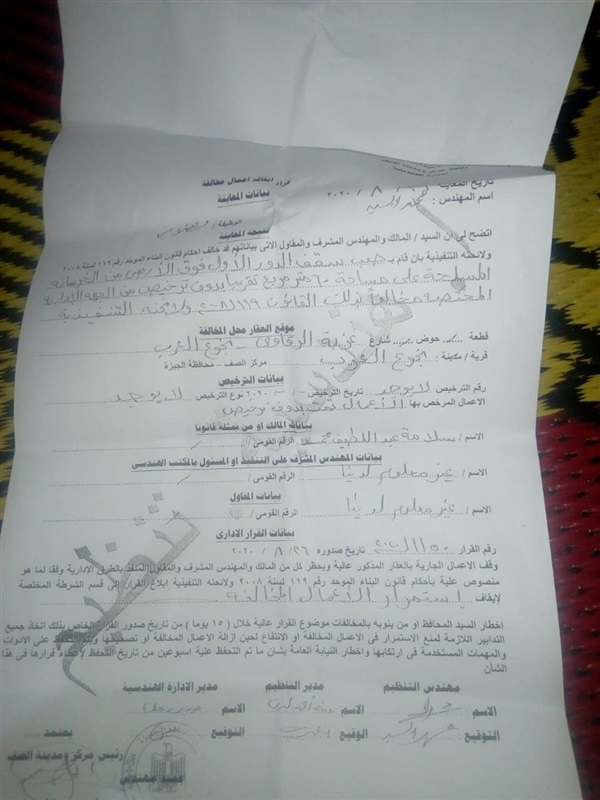 قرار إيقاف أعمال مخالفة
تاريخ المعاينة ٢٦ / ٨ / ٢٠٢٠
بيانات المعاينة
اسم المهندس : محمد
الوظيفة /
نتيجة المعاينة
اتضح لى ان السيد / المالك والمهندس المشرف والمقاول الاتى بياناتهم قد خالف احكام قانون البناء الموحد رقم ١١٩ لسنة ٢٠٠٨
ولائحته التنفيذية بان قام بـ صب سقف الدور الأول فوق الأرضى من الخرسانة
المسلحة على مساحة ٦٠ متر مربع تقريبا بدون ترخيص من الجهة الإدارية
المختصة مخالفا بذلك القانون ١١٩ / ٢٠٠٨ ولائحته التنفيذية
موقع العقار محل المخالفة
قطعة حوض شارع عزبة الرقاوى - نجوع العرب
قرية / مدينة : نجوع العرب مركز الصف - محافظة الجيزة
بيانات الترخيص
رقم الترخيص لا يوجد تاريخ الترخيص - / - / ٢٠٢٠ نوع الترخيص لا يوجد
الاعمال المرخص بها الأعمال تمت بدون ترخيص
بيانات المالك او من يمثله قانونا
الاسم / سلامة عبد اللطيف محمد الرقم القومى /
بيانات المهندس المشرف على التنفيذ او المسئول بالمكتب الهندسى
الاسم / غير معلوم لدينا الرقم القومى /
بيانات المقاول
الاسم / غير معلوم لدينا الرقم القومى /
بيانات القرار الادارى
رقم القرار ١١٥٠ / ٢٠٢٠ تاريخ صدوره ٢٦ / ٨ / ٢٠٢٠
وقف الاعمال الجارية بالعقار المذكور عالية ويحظر كل من المالك والمهندس المشرف والمقاول المنفذ بالطرق الادارية وفقا لما هو
منصوص علية بأحكام قانون البناء الموحد رقم ١١٩ لسنة ٢٠٠٨ ولائحته التنفيذية ابلاغ القرار إلى قسم الشرطة المختصة
لإيقاف باستمرار الأعمال المخالفة
اخطار السيد المحافظ او من ينوبه بالمخالفات موضوع القرار عالية خلال (١٥ يوما) من تاريخ صدور القرار الخاص بذلك اتخاذ جميع
التدابير اللازمة لمنع الاستمرار فى الاعمال المخالفة او الانتفاع لحين ازالة الاعمال المخالفة او تصحيحها ويتم التحفظ على الادوات
والمهمات المستخدمة فى ارتكابها واخطار النيابة العامة بشان ما تم التحفظ علية اسبوعين من تاريخ التحفظ لإعطاء قرارها فى هذا
الشأن
مهندس التنظيم مدير التنظيم مدير الادارة الهندسية
الاسم الاسم الاسم
التوقيع التوقيع التوقيع
يعتمد
رئيس مركز ومدينة الصف